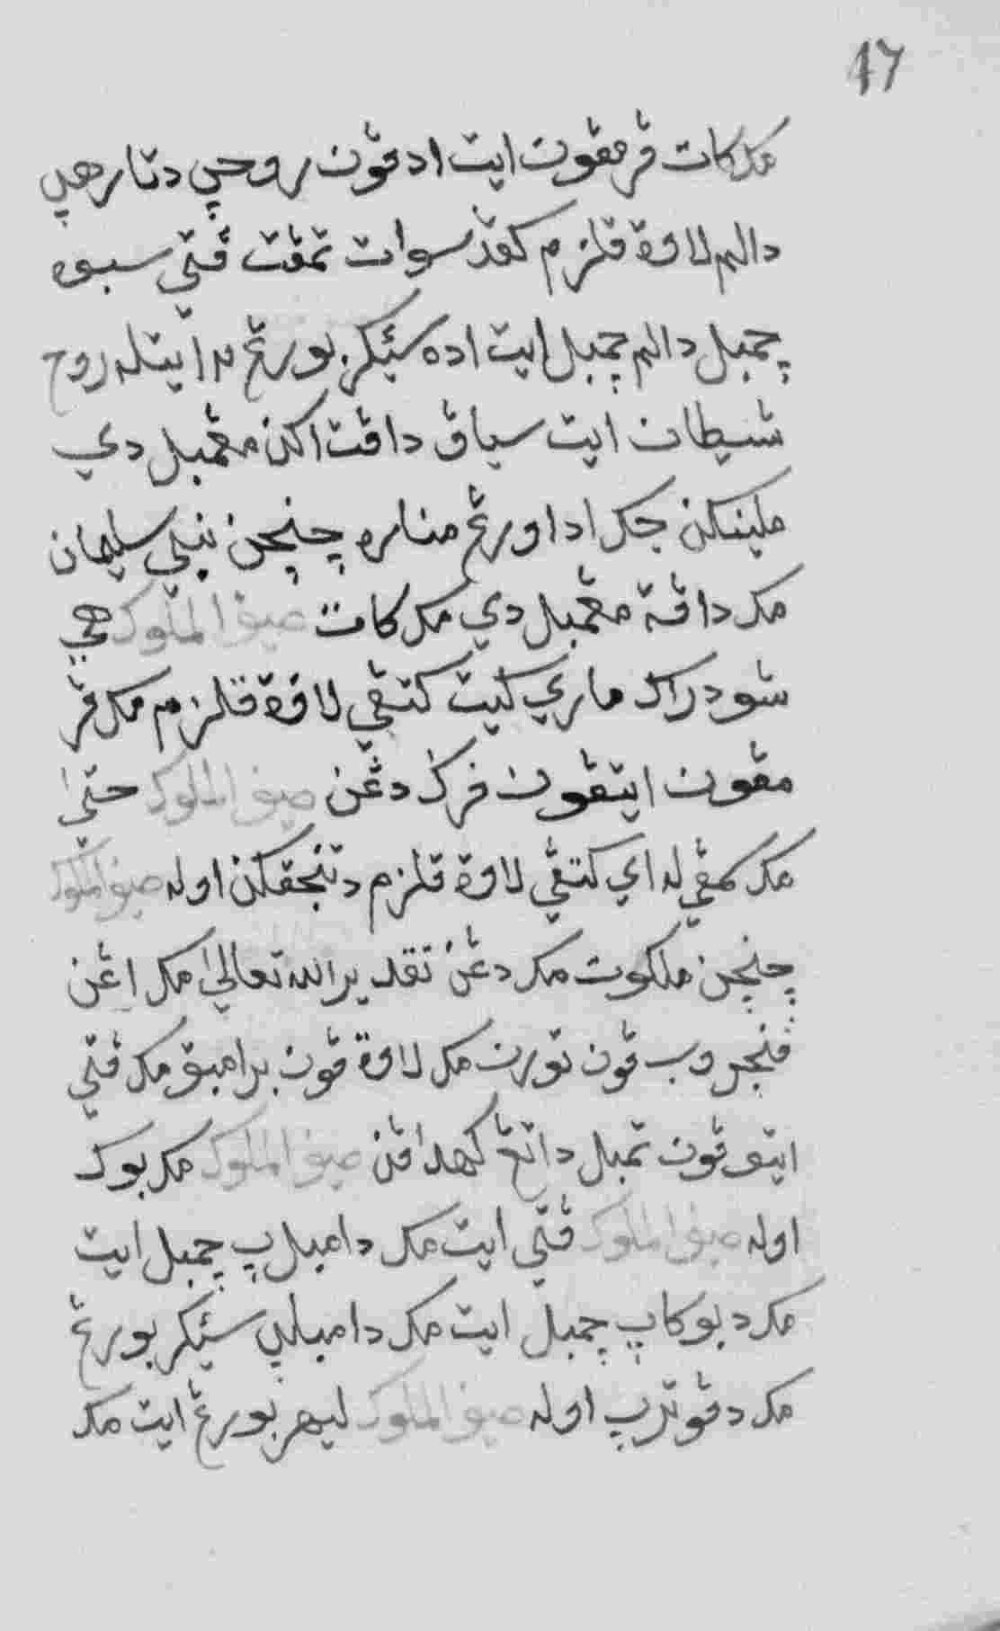 17
مک کات ڤرمڤون ايت ادڤون روحڽ دتارهڽ
دالم لاوة قلزم کڤد سوات تمڤت ڤتي سبوه
چمبل دالم چمبل ايت اده سئيکر بورڠ مک ايتله روح
شيطان ايت سياڤ داڤت اکن مڠمبل دي
ملينکن جک اد اورڠ مناره چنچن نبي سليمان
مک داڤة مڠمبل دي مک کات صيف الملوک هي
سودراک ماري کيت کتڤي لاوة قلزم مک ڤر
مڤون ايتڤون ڤرک دڠن صيف الملوک حتى
مک سمڤيله اي کتڤي لاوة قلزم دتنجقکن اوله صيف الملوک
چنچن ملکوت مک دڠن تقدير الله تعالى مک اڠن
ڤنجروب ڤون تورن مک لاوة ڤون براومبق مک ڤتي
ايتوڤون تمبل داتڠ کهداڤن صيف الملوک مک بوک
اوله صيف الملوک ڤتي ايت مک دامبلڽ چمبل ايت
مک دبوکاڽ چمبل ايت مک دامبلڽ سئيکر بورڠ
مک دڤوترڽ اوله صيف الملوک ليهر بورڠ ايت مک